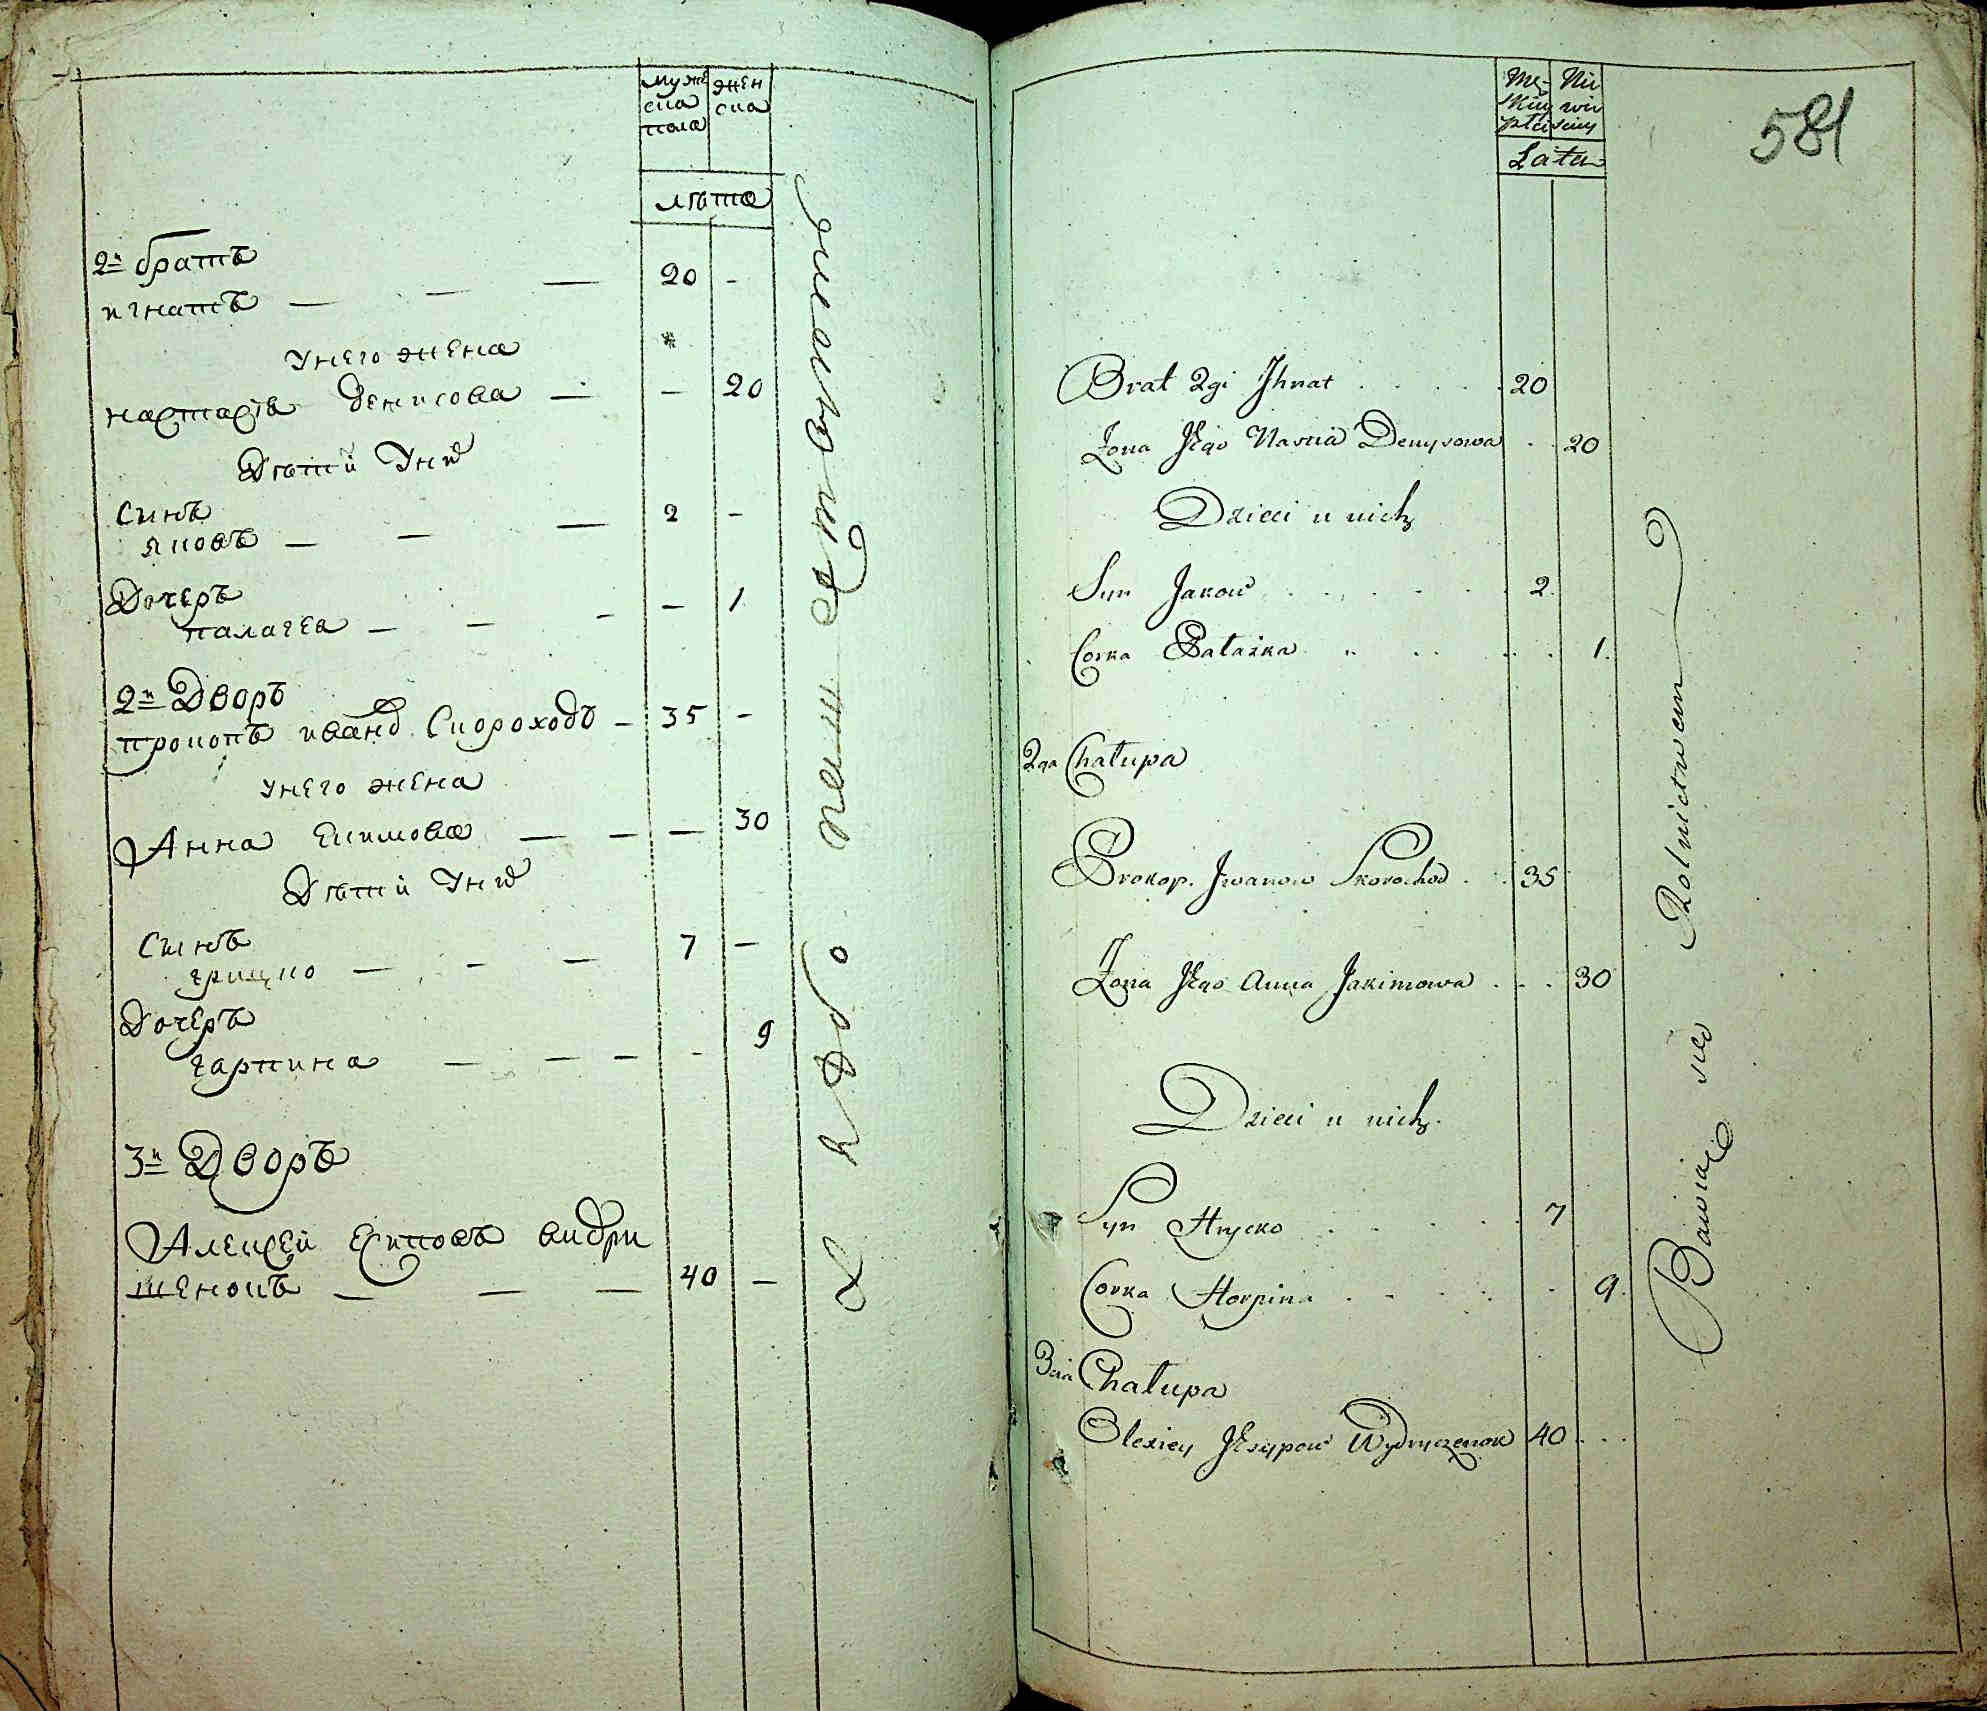 муже
ска
пола
жен
ска
лѣта
2й братъ
игнатъ — — — 20 -
унего жена
настасія Денисова — — 20
Дѣти у них
Синъ
яковъ — — — 2 -
Дочеръ
палагея — — — — 1
2й Дворъ
прокопъ иванов Скороходъ — 35 -
унего жена
Анна Екимова — — — 30
Дѣти у них
Сынъ
грицко — - — 7 —
Дочеръ
гарпина — — — - 9
3й Дворъ
Алексей Есиповъ видри
ченокъ — — — 40 —
хлѣбо пашество
Mę-
skiey
płci
Nie
wie
sciey
Lata
581
Brat 2gi Ihnat . . . . . 20
Żona Jego Nascia Denysowa . . 20
Dzieci u nich
Syn Jakow . . . . . . 2
Corka Pałażka . . . . . 1.
2ga Chałupa
Prokop Iwanow Skorochod . . 35
Żona Jego Anna Jakimowa . . . 30
Dzieci u nich.
Syn Hrycko . . . . . 7
Corka Horpina . . . . . 9.
3cia Chałupa
Olexiey Jesypow Wydryczenok 40 . . .
Bawią się Rolnictwem